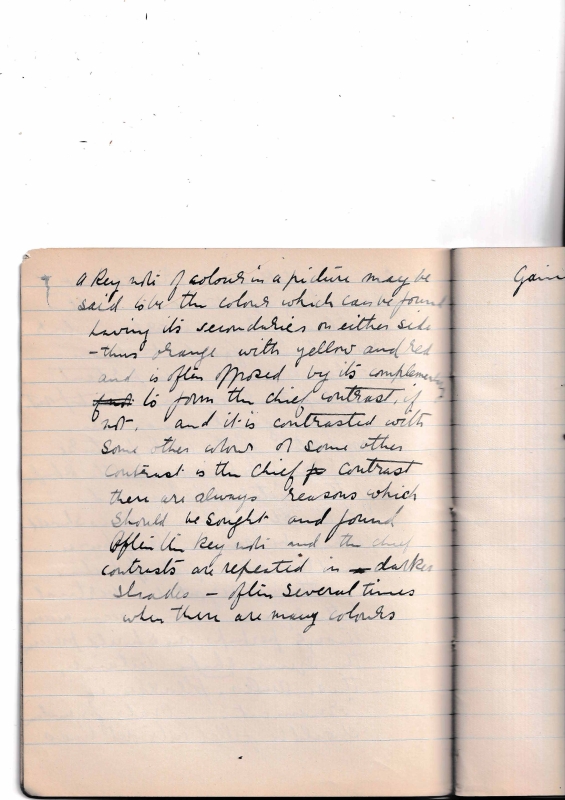 A Key note of colour in a picture may be
said to be the colour which can be found
having its secondaries on either side
- thus orange with yellow and red
and is often opposed by its complementary
to form the chief contrast, if
not, and it is contrasted with
some other colour or some other
contrast is the chief contrast
there are always reasons which
should be sought and found
Often the key note and the chief
contrasts are repeated in darker
shades - often several times
when there are many colours
Gain